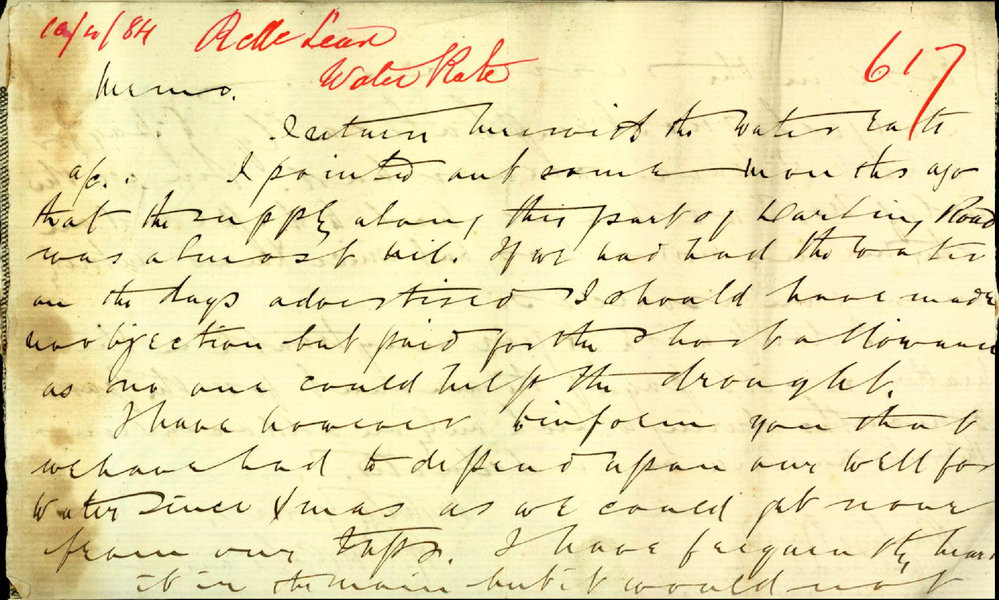 10/10/84 Relle Lear 617
Water Rate
Memo.
I return herewith the Water Rate
a/c. I pointed out some months ago
that the supply along this part of Darling Road
was almost nil. If we had had the water
on the days advertised I should have made
no objection but paid for the short allowance
as no one could help the drought.
I have however to inform you that
we have had to depend upon our well for
water since Xmas as we could get none
from our taps. I have frequently heard
it in the main but it would not